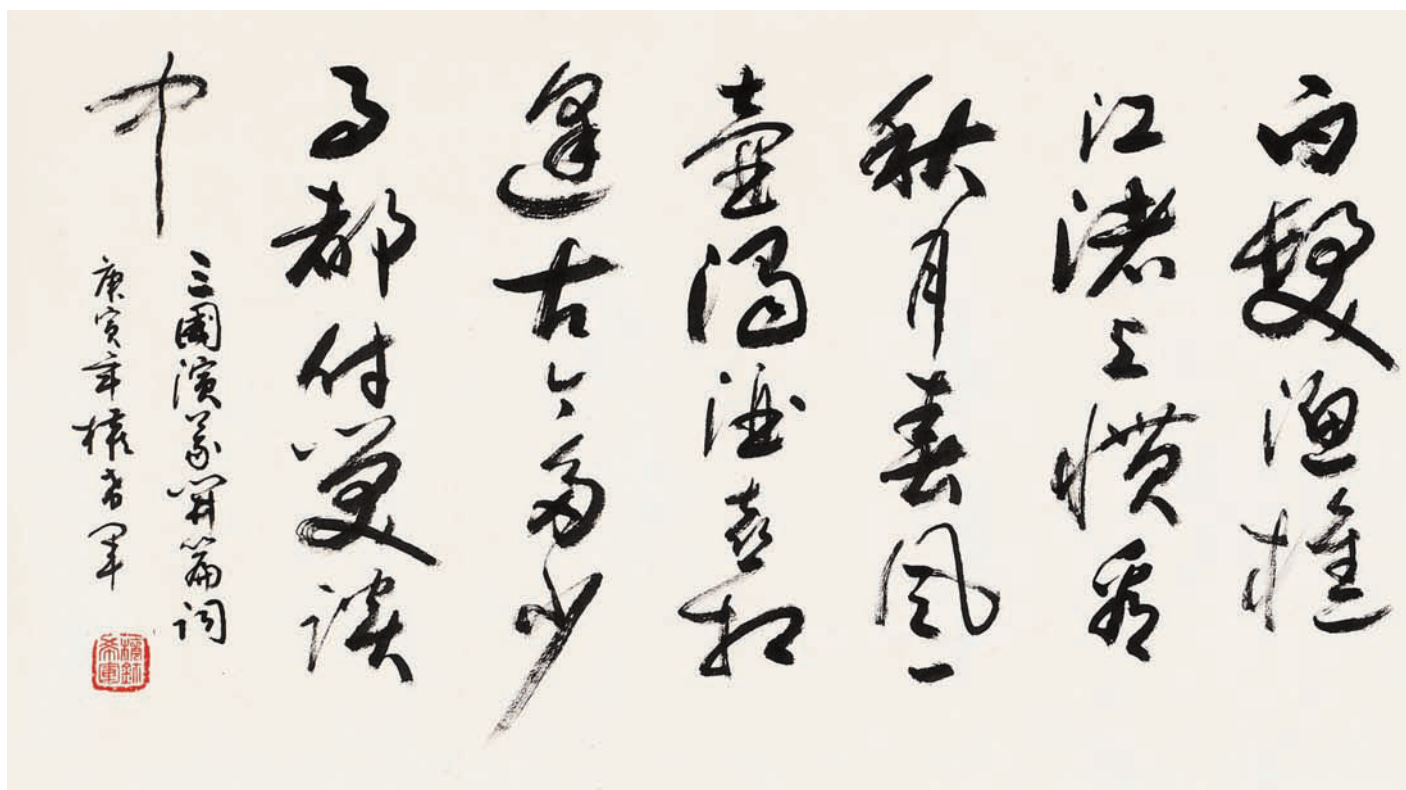 白髮漁樵
江渚上慣看
秋月春風一
壺濁酒喜相
逢古今多少
事都付笑談
中
三國演義開篇詞
庚寅年權希軍